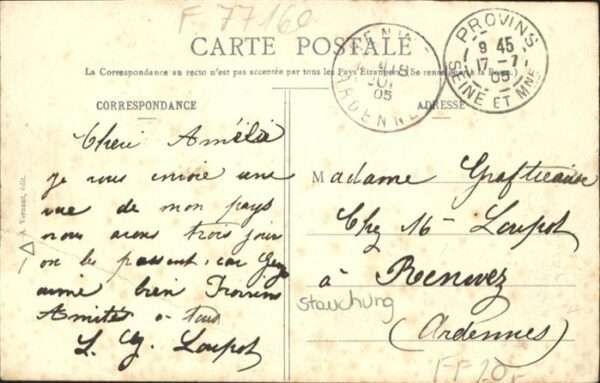 F 77160
CARTE POSTALE
(La Correspondance au recto n'est pas acceptée par tous les Pays Etrangers. (Se renseigner à la Poste).
PROVINS
9 45
17 - 7
05
SEINE ET MNE
05
ARDENNES
CORRESPONDANCE
ADRESSE
Cheri Amélie
je vous envoie une
vue de mon pays
nous avons trois jour
on les passent, car
aime bien Provins
Amites a tous
L. Loupot
Madame
Chez Mr Loupot
à Renwez
(Ardennes)
stauchung
FF 20,-
édit.